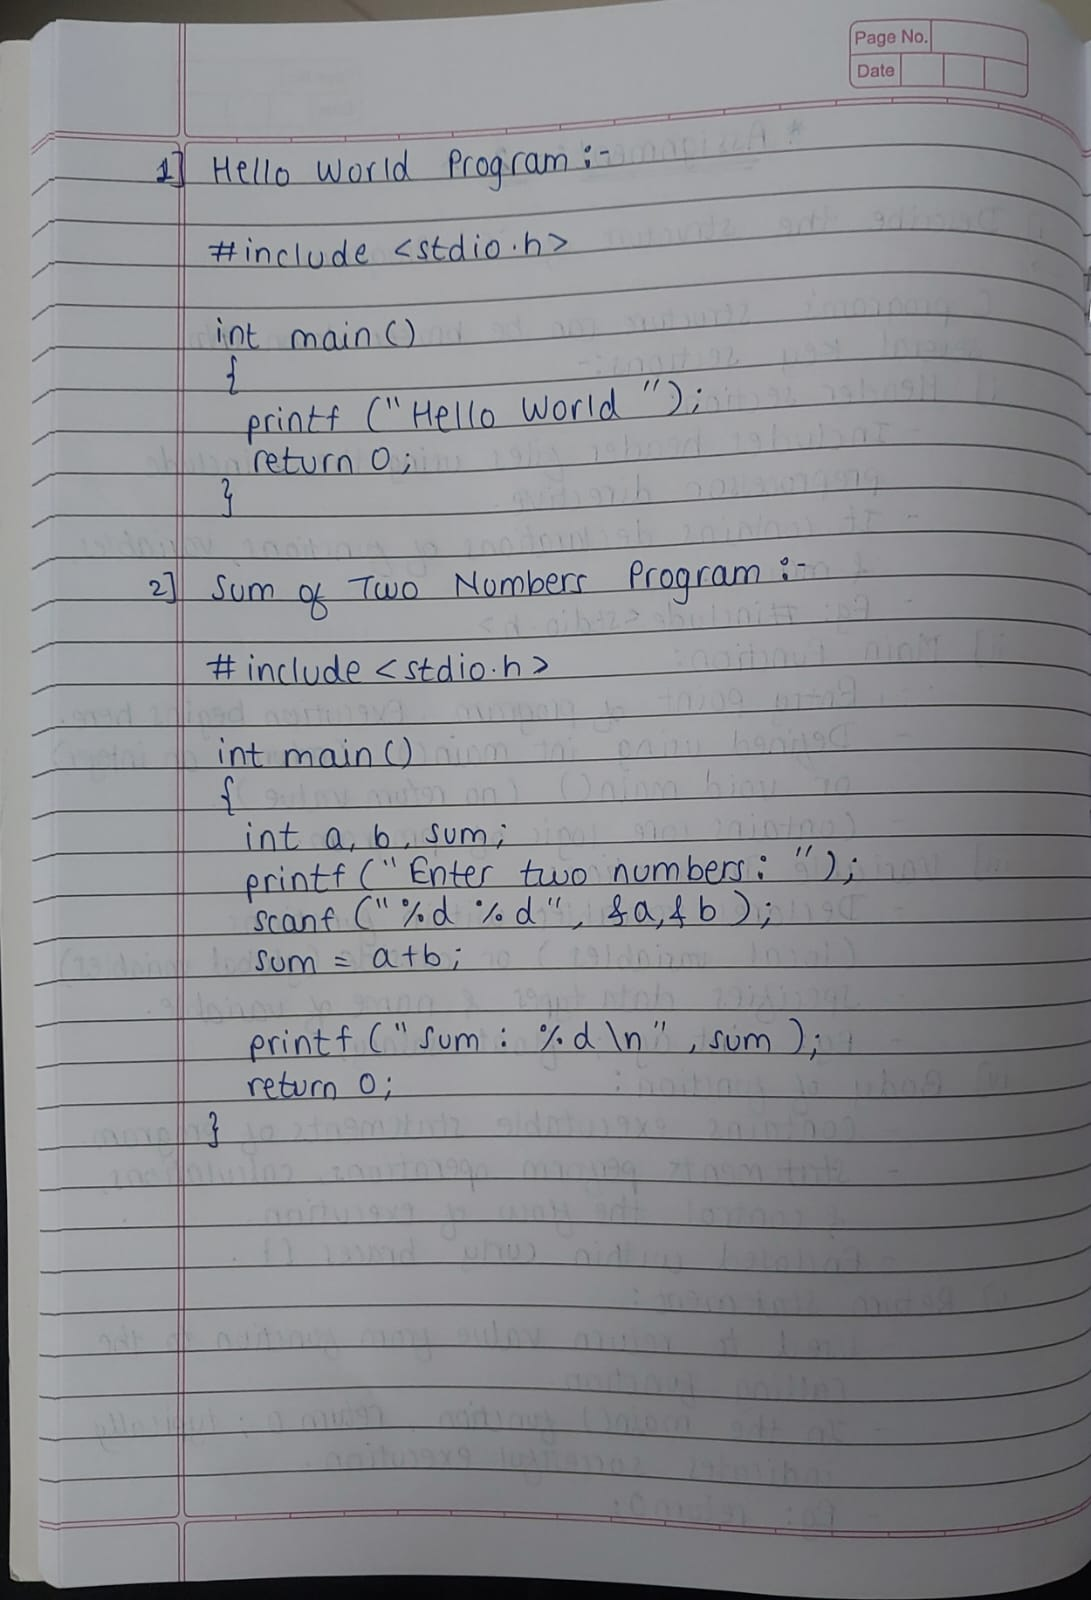 Page No.
Date
1] Hello World Program :-
#include <stdio.h>
int main()
{
printf ("Hello World ");
return 0;
}
2] Sum of Two Numbers Program :-
# include <stdio.h>
int main()
{
int a, b, sum;
printf ("Enter two numbers: ");
scanf ("%d %d", &a, & b );
sum = a+b;
printf (" Sum : %d \n" , sum );
return 0;
}